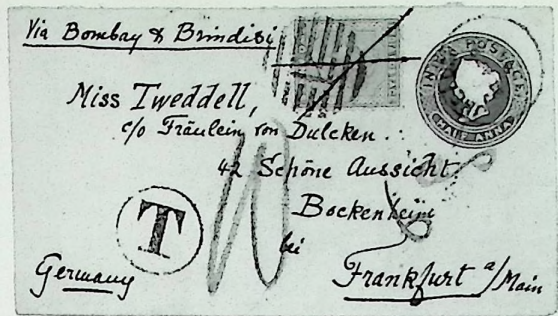 Via Bombay & Brindisi
INDIA POSTAGE
HALF ANNA
Miss Tweddell,
c/o Fräulein von Dulcken.
42 Schöne Aussicht
Bockenheim
bei
T
Germany
Frankfurt a/Main